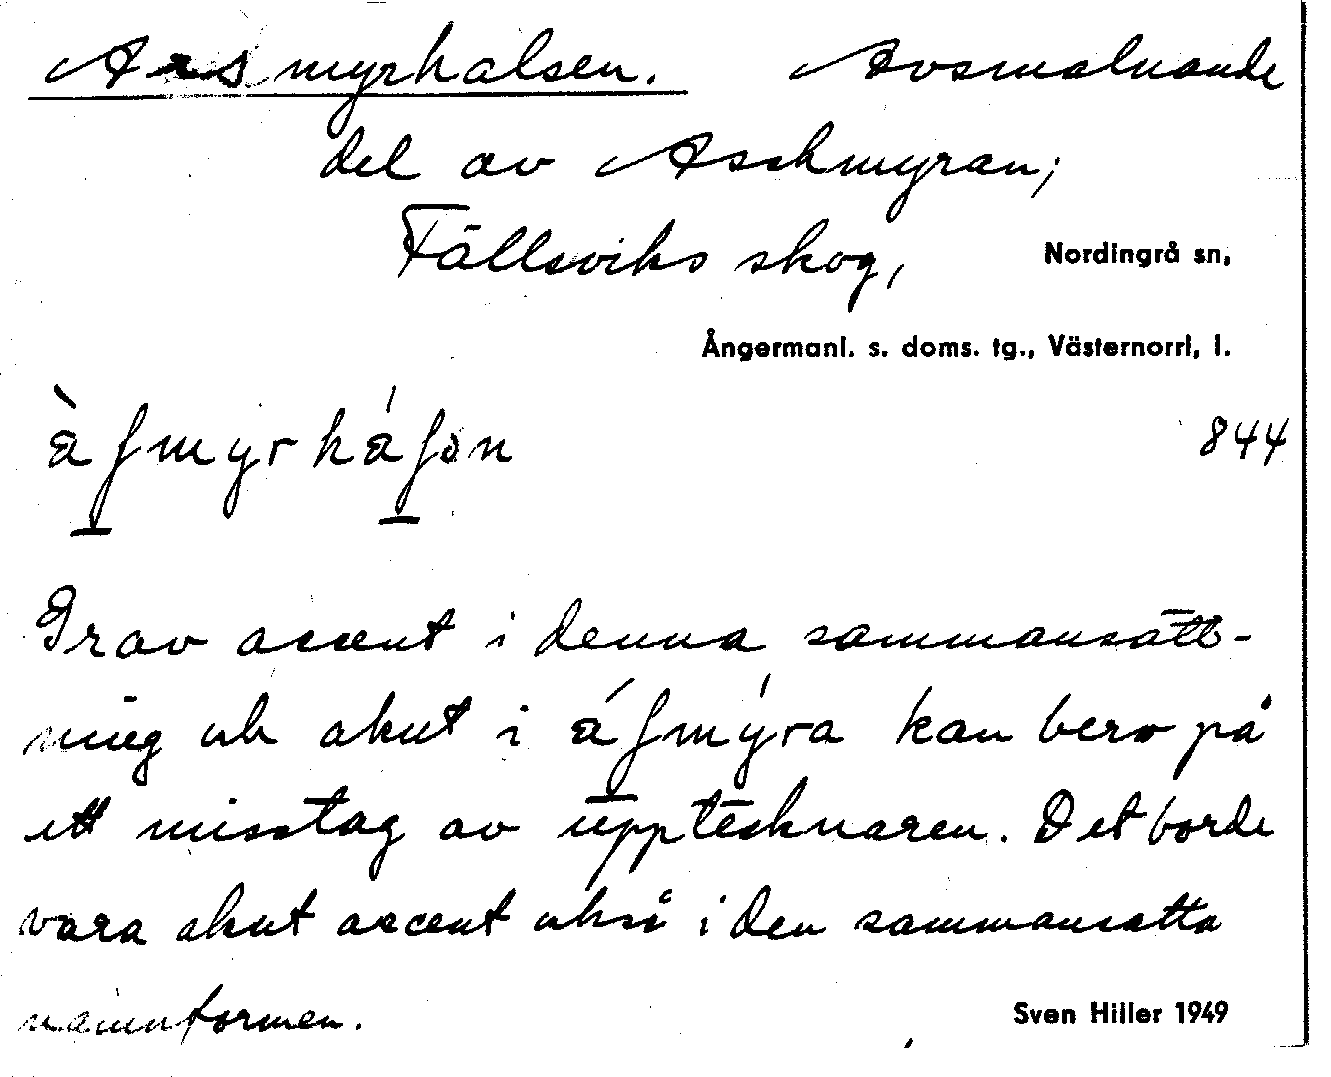 Arsmyrhalsen. Avsmalnande
del av Aschmyran;
Fällsviks skog, Nordingrå sn,
Ångermanl. s. doms. tg., Västernorrl, l.
844
Grav accent i denna sammansätt-
ning och akut i kan bero på
ett misstag av upptecknaren. Det borde
vara akut accent också i den sammansatta
namnformen.
Sven Hiller 1949